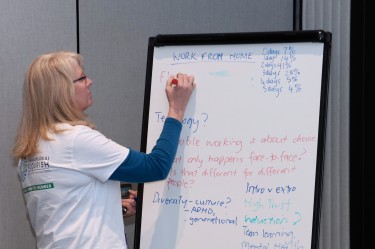 WORK FROM HOME
0 days 7%
1 day 14%
2 days 41%
3 days 28%
4 days 5%
5 days
Fl
HOME
working is about choice
only happens face-to-face?
is that different for different
people?
Diversity - culture?
- ADHD,
- generational
Intro v extro
High Trust
Induction?
Team learning
Mental